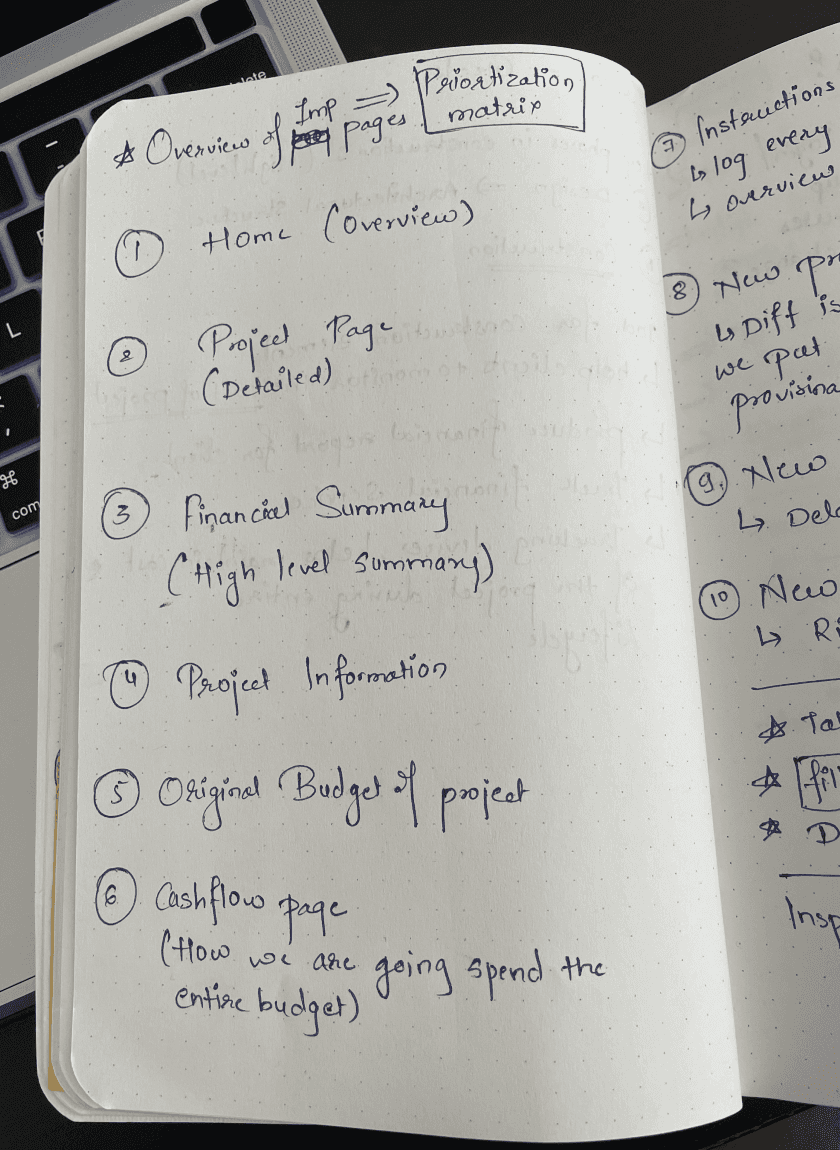 ☆ Overview of Imp pages ⇒ Priortization
matrix
① Home (Overview)
② Project Page
(Detailed)
③ Financial Summary
(High level summary)
④ Project Information
⑤ Original Budget of project
⑥ Cashflow page
(How we are going spend the
entire budget)
⑦ Instructions
↳ log every
↳ overview
⑧ New pr
↳ Diff is
we put
provisina
⑨ New
↳ Dela
⑩ New
↳ Ri
☆ Tal
☆ fil
☆ D
Insp
L
⌘
com